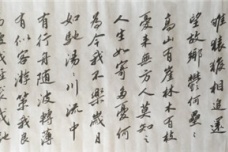 雊猿猴相追還
望故鄉鬱何壘〻
高山有崖林木有枝
憂來無方人莫知之
人生如寄多憂何
為今我不樂歲月
如馳湯〻川流中
有行舟隨波轉薄
有似客游策我良